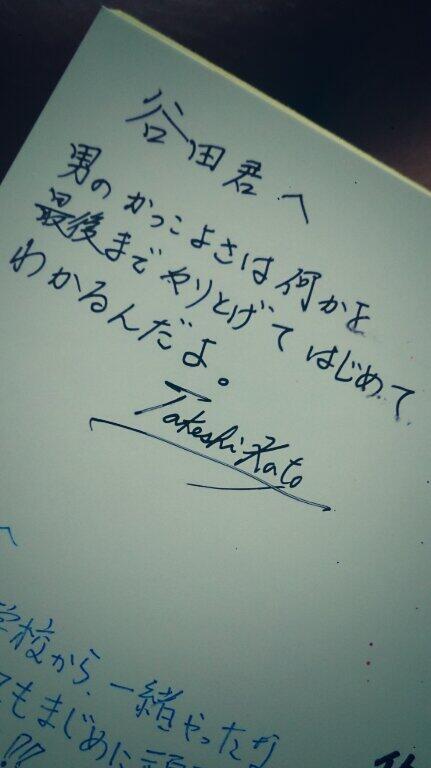 谷田君へ
男のかっこよさは何かを
最後までやりとげてはじめて
わかるんだよ。
Takeshi Kato
へ
学校から、一緒やったな
もまじめに
!!